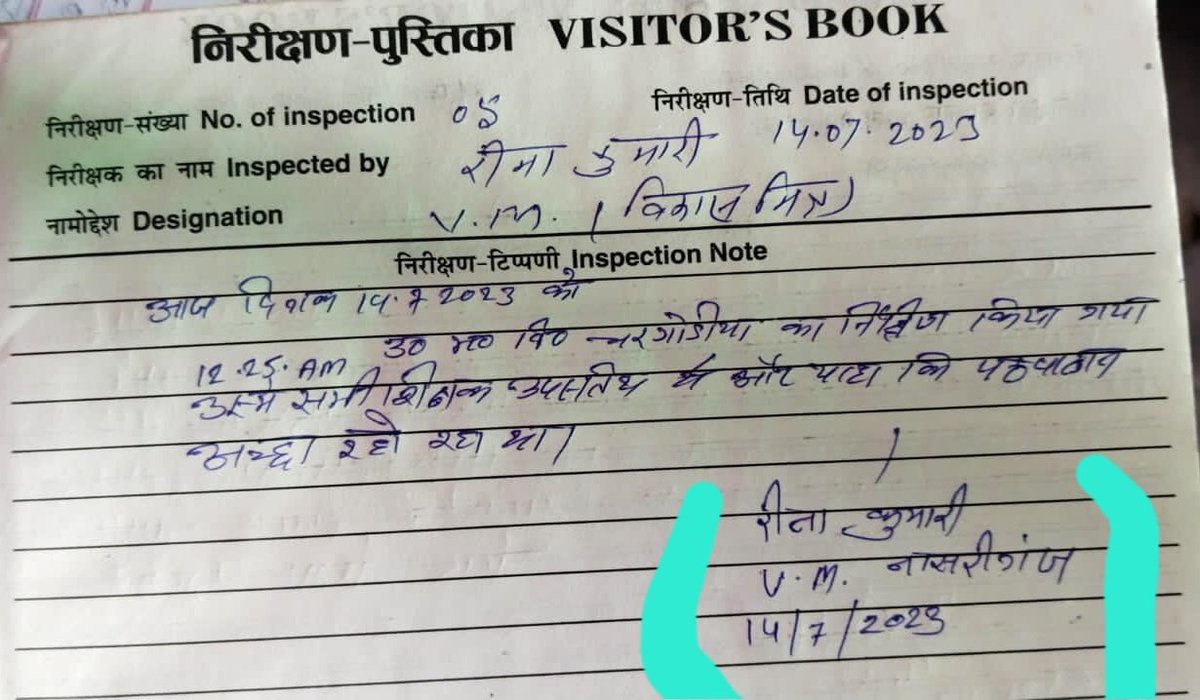 निरीक्षण-पुस्तिका VISITOR'S BOOK
निरीक्षण-संख्या No. of inspection 05 निरीक्षण-तिथि Date of inspection
14.07.2023
निरीक्षक का नाम Inspected by रीना कुमारी
नामोद्देश Designation V.M. (विकास मित्र)
निरीक्षण-टिप्पणी Inspection Note
आज दिनांक 14.7.2023 को
12.25.AM उ० म० वि० का किया गया
सभी शिक्षक और पाया कि
अच्छा था।
रीना कुमारी
V.M. नासरीगंज
14/7/2023